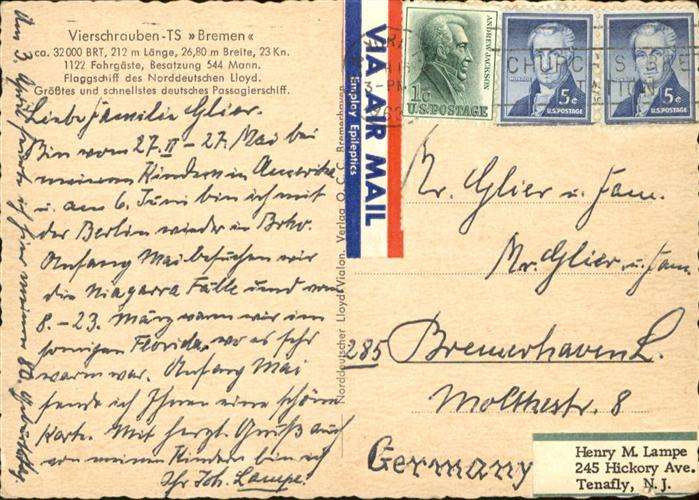 Vierschrauben-TS »Bremen«
ca. 32 000 BRT, 212 m Länge, 26,80 m Breite, 23 Kn.
1122 Fahrgäste, Besatzung 544 Mann.
Flaggschiff des Norddeutschen Lloyd.
Größtes und schnellstes deutsches Passagierschiff.
Liebe Familie Glier.
Bin vom 27. II – 27. Mai bei
meinen Kindern in Amerika
u. am 6. Juni bin ich mit
der Berlin wieder in Brhv.
Anfang Mai besuchen wir
die Niagarra Fälle und vom
8. – 23. März wann wir im
sonnigen Florida, wo es sehr
warm war. Anfang Mai
sende ich Ihnen eine schöne
Karte. Mit herzl. Gruß auch
von meinen Kindern bin ich
Ihr Joh. Lampe.
Am 3. April feierte ich hier meinen 80. Geburtstag
Norddeutscher Lloyd Vialon. Verlag O. C. C. Bremerhaven
VIA AIR MAIL
Employ Epileptics
ANDREW JACKSON
1¢
U.S. POSTAGE
5¢
U.S. POSTAGE
5¢
U.S. POSTAGE
PM
Mr. Glier u. Fam.
Mr. Glier u. Fam
285 Bremerhaven L.
Moltkestr. 8
Germany
Henry M. Lampe
245 Hickory Ave.
Tenafly, N. J.